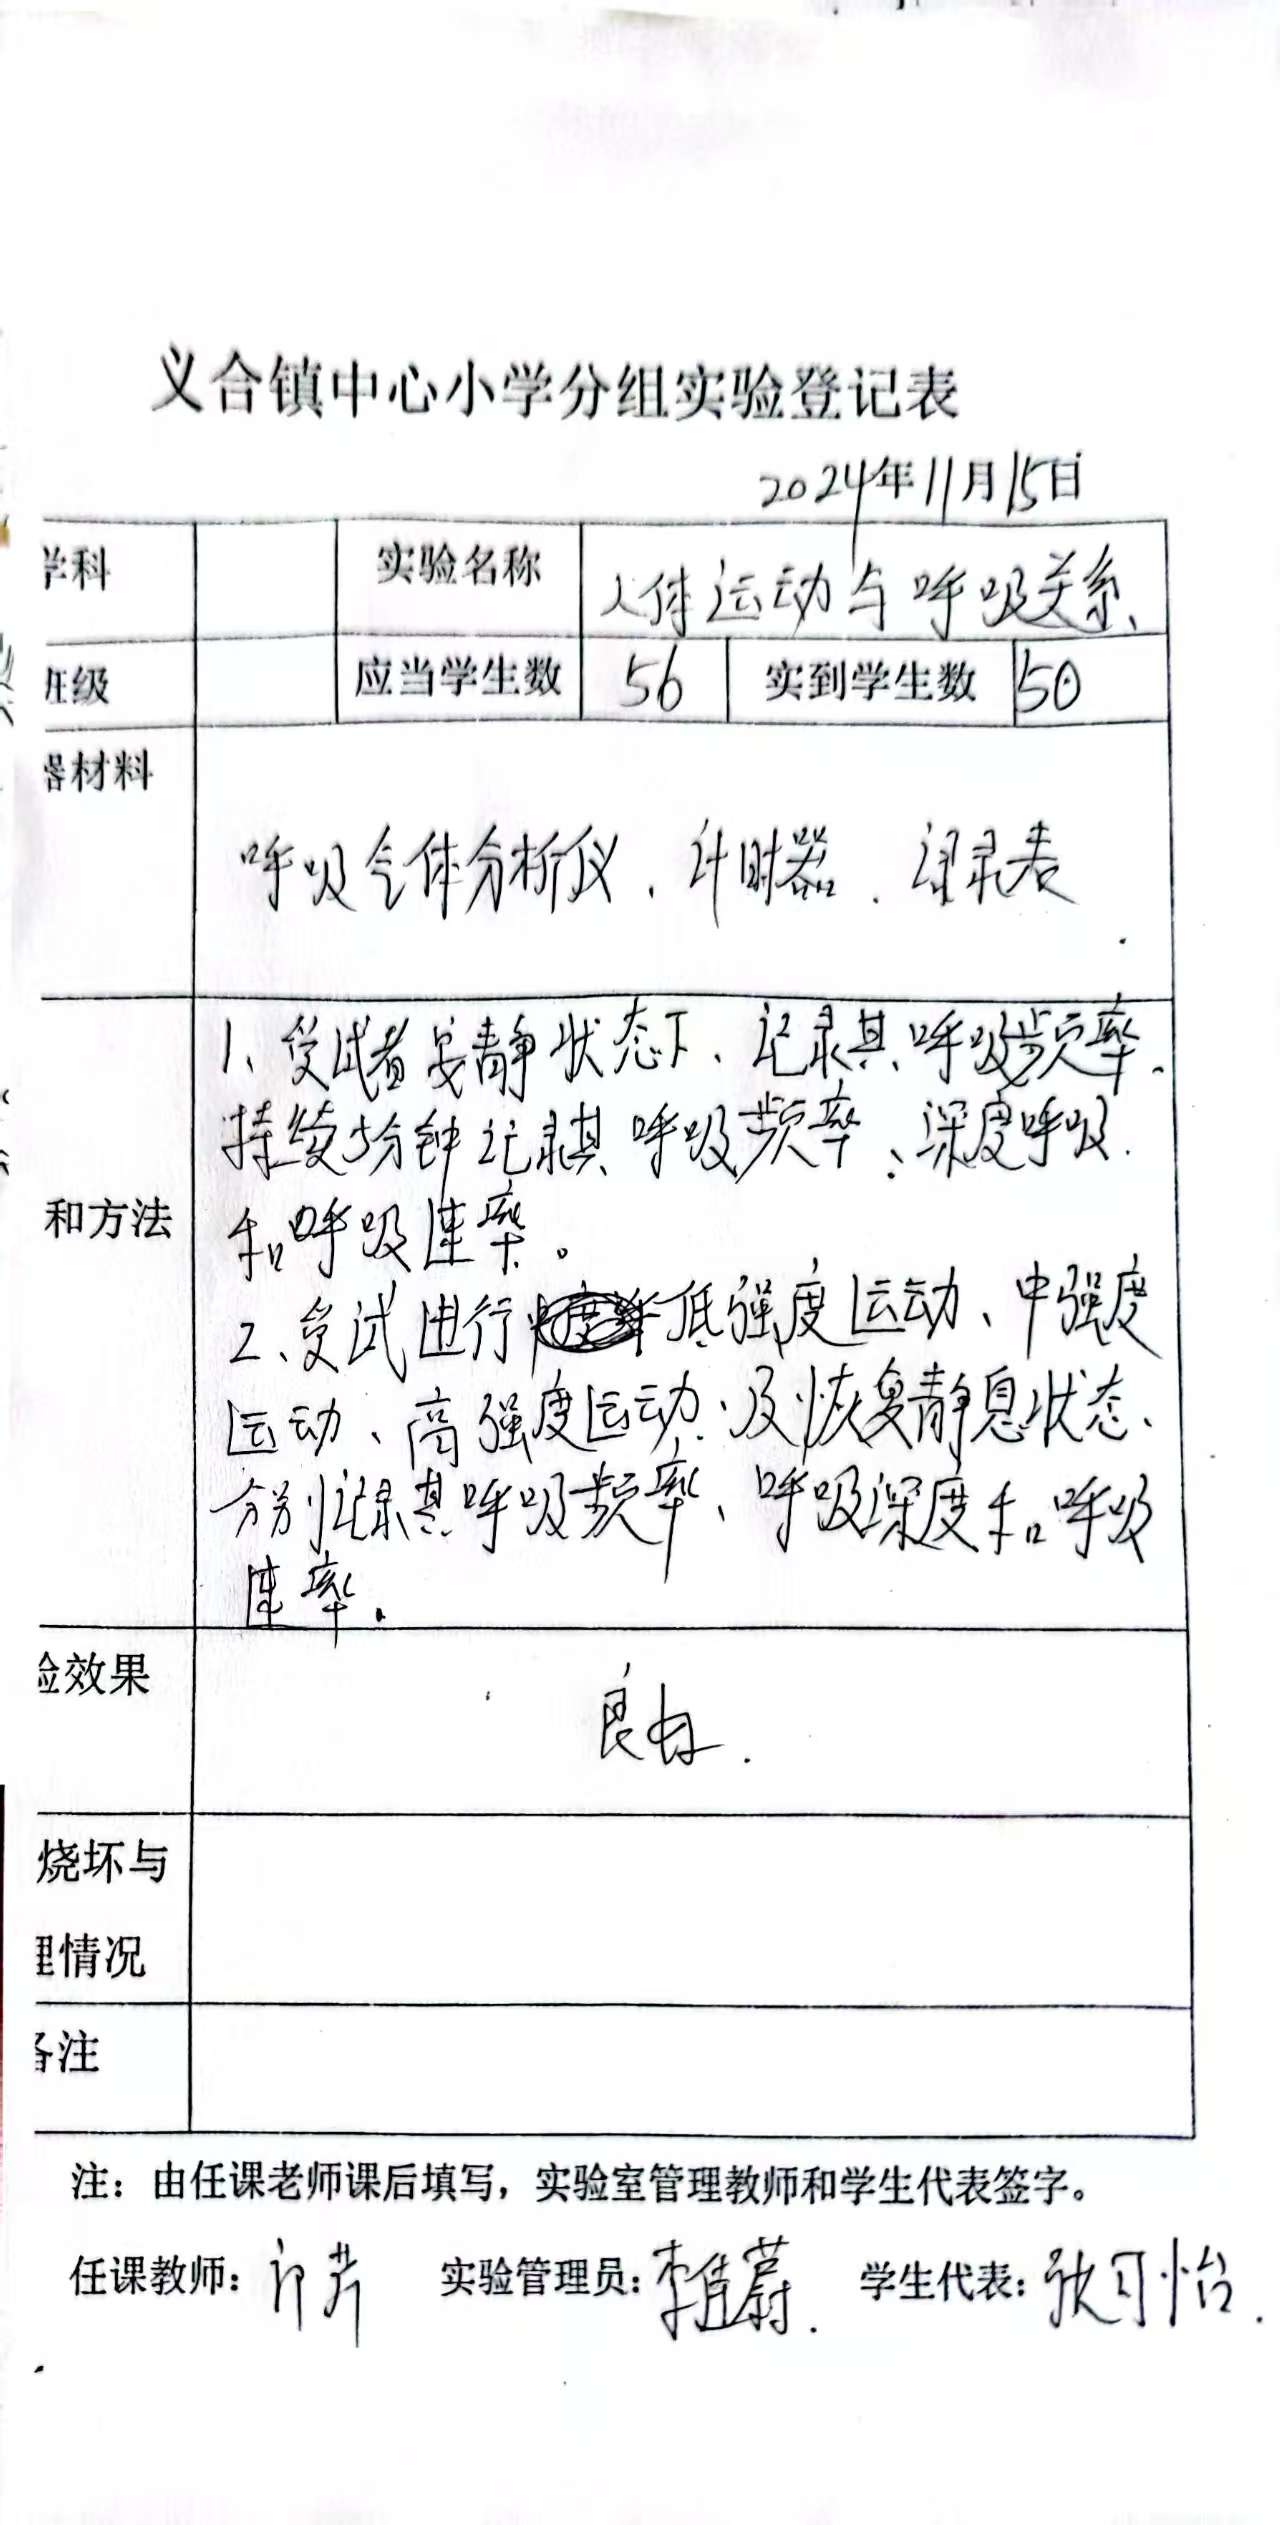 义合镇中心小学分组实验登记表
2024年11月15日
学科 实验名称 人体运动与呼吸关系、
班级 应当学生数 56 实到学生数 50
器材料
呼吸气体分析仪、计时器、记录表
1、受试者安静状态下、记录其呼吸频率.
持续5分钟记录其呼吸频率、深度呼吸.
和方法 和呼吸速率。
2、受试进行低强度运动、中强度
运动、高强度运动、及恢复静息状态、
分别记录其呼吸频率、呼吸深度和呼吸
速率.
验效果 良好.
烧坏与
理情况
备注
注：由任课老师课后填写，实验室管理教师和学生代表签字。
任课教师： 实验管理员：李佳蔚. 学生代表：张可怡.